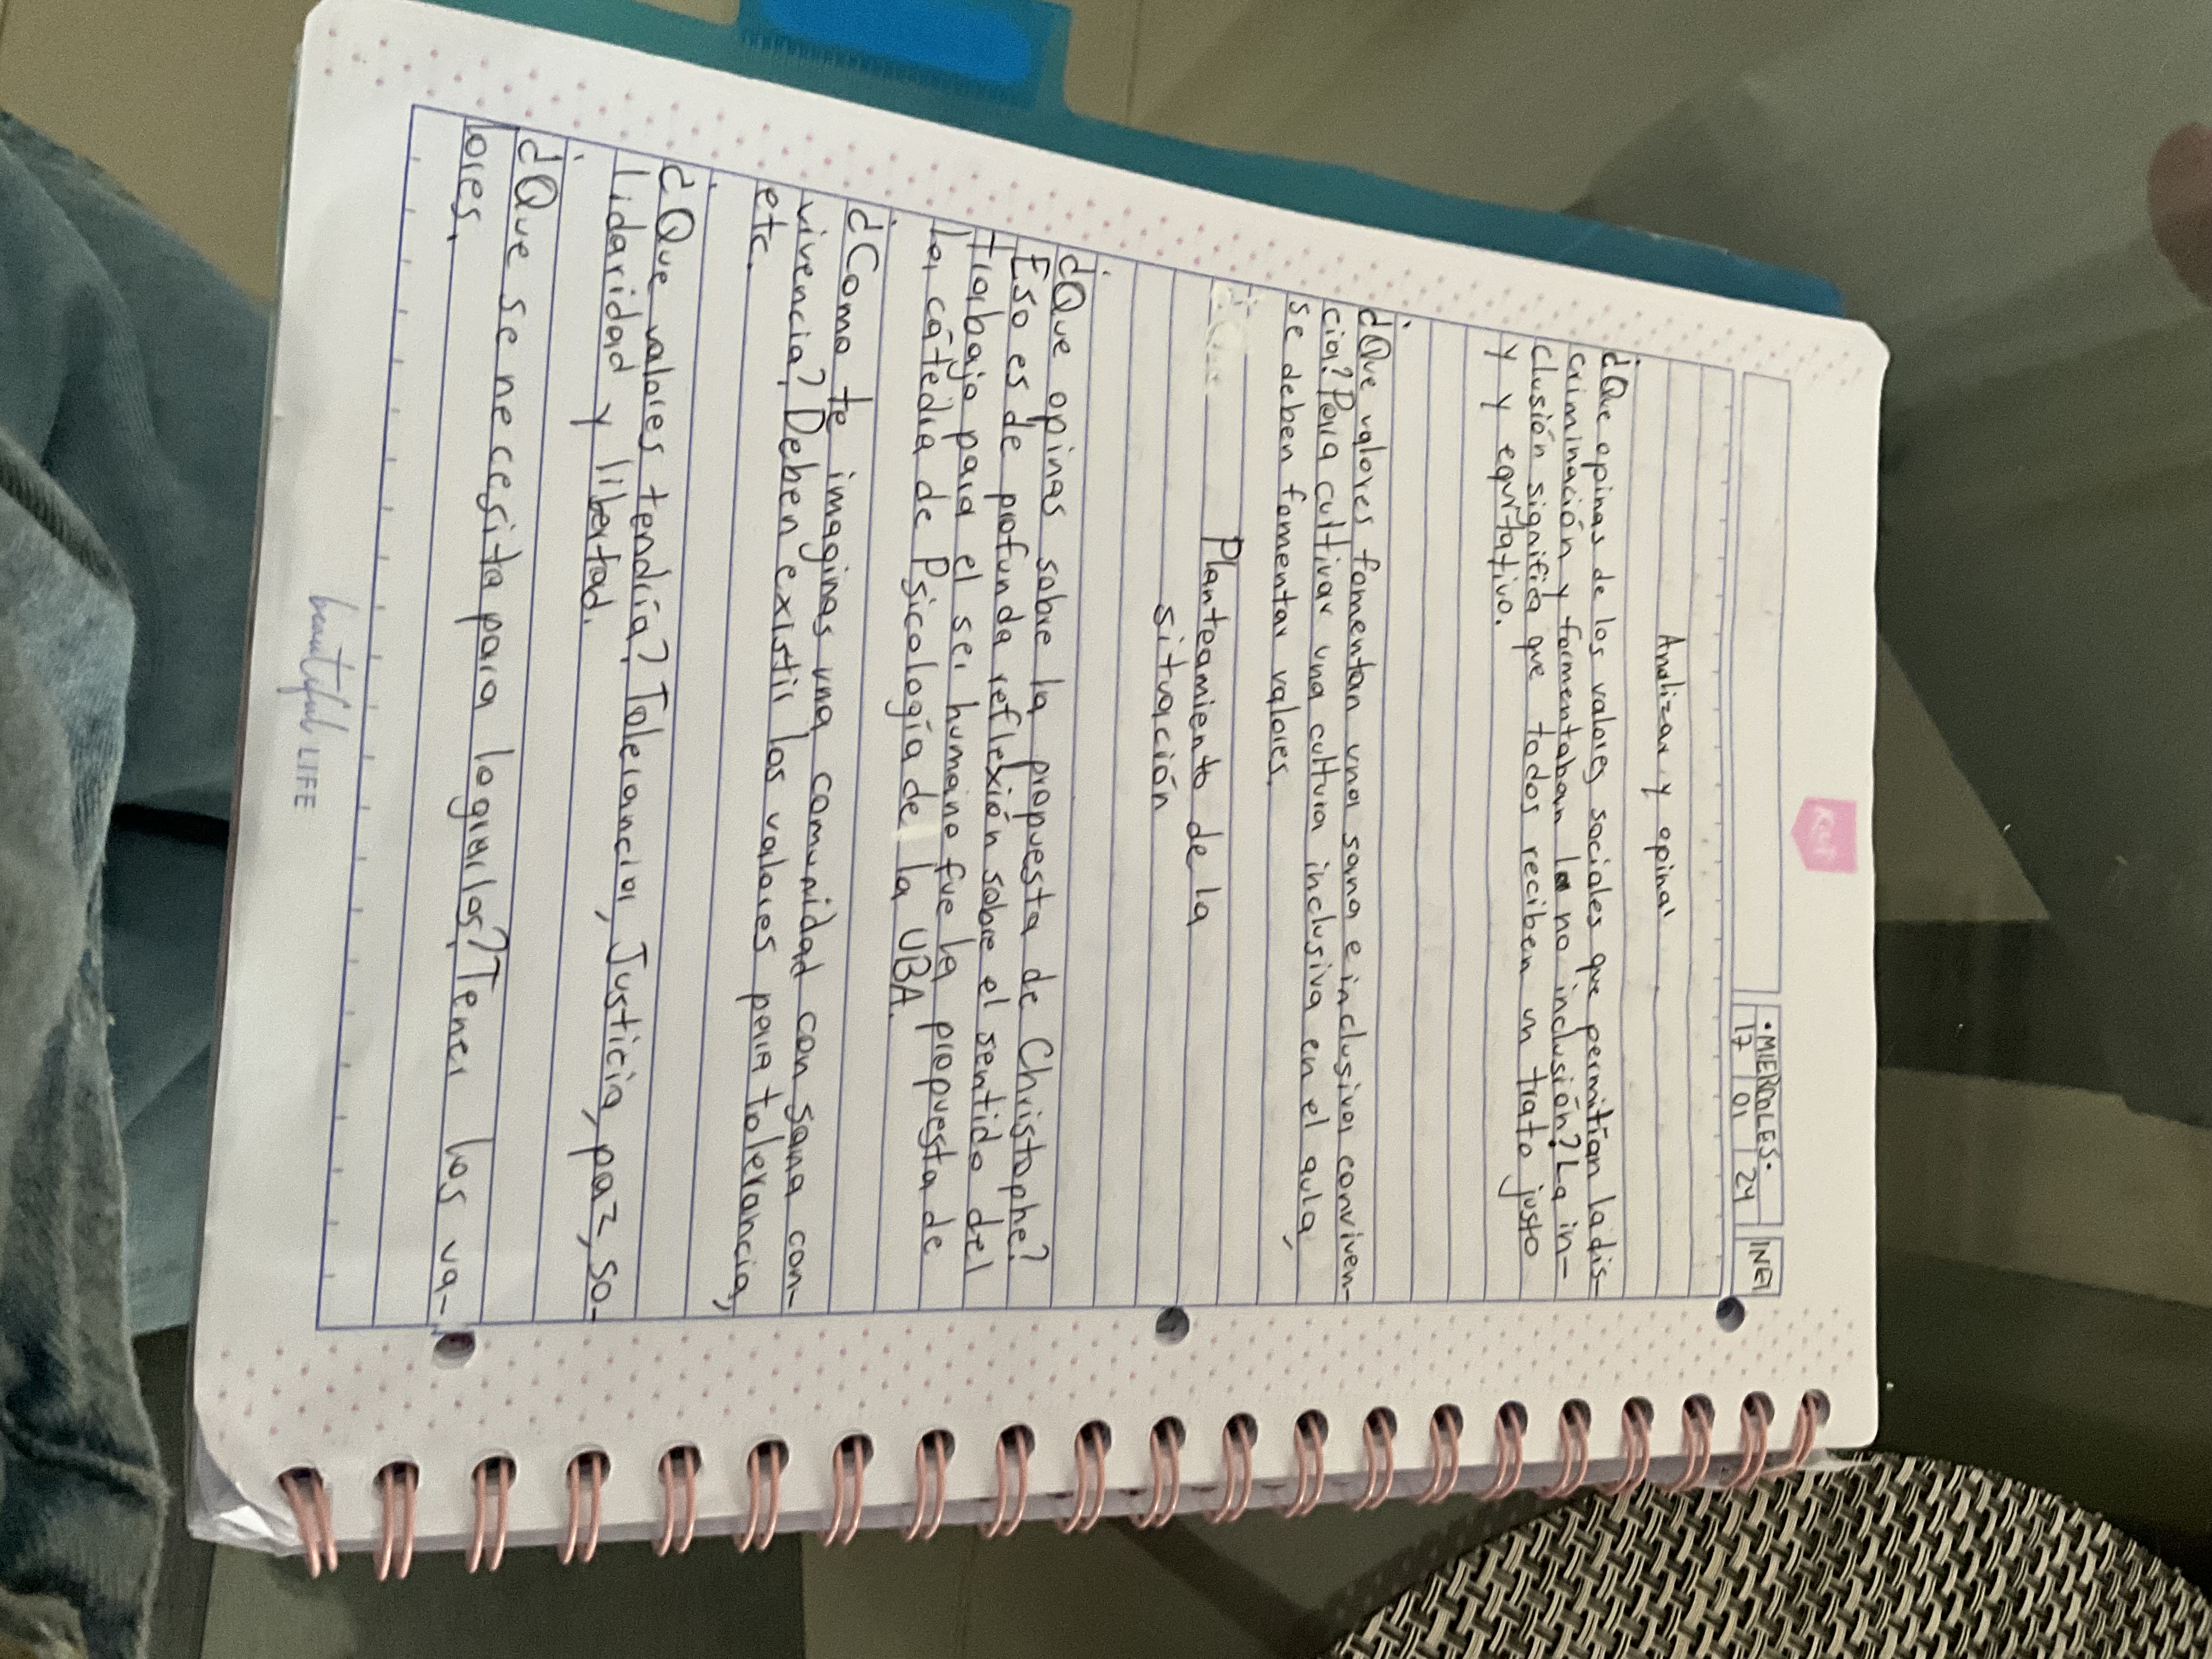 •MIERCOLES•
17 01 24 INEI
Analizar y opinar
¿Que opinas de los valores sociales que permitían la dis-
criminación y formentaban la no inclusión? La in-
clusión significa que todos reciben un trato justo
y y equitativo.
¿Que valores fomentan una sana e inclusiva conviven-
cia? Para cultivar una cultura inclusiva en el aula,
se deben fomentar valores.
Planteamiento de la
situación
¿Que opinas sobre la propuesta de Christophe?
Eso es de profunda reflexión sobre el sentido del
trabajo para el ser humano fue la propuesta de
la cátedra de Psicología de la UBA.
¿Como te imaginas una comunidad con sana con-
vivencia? Deben existir los valores para tolerancia,
etc.
¿Que valores tendría? Tolerancia, Justicia, paz, so-
lidaridad y libertad.
¿Que se necesita para lograrlos? Tener los va-
lores.
beautiful LIFE